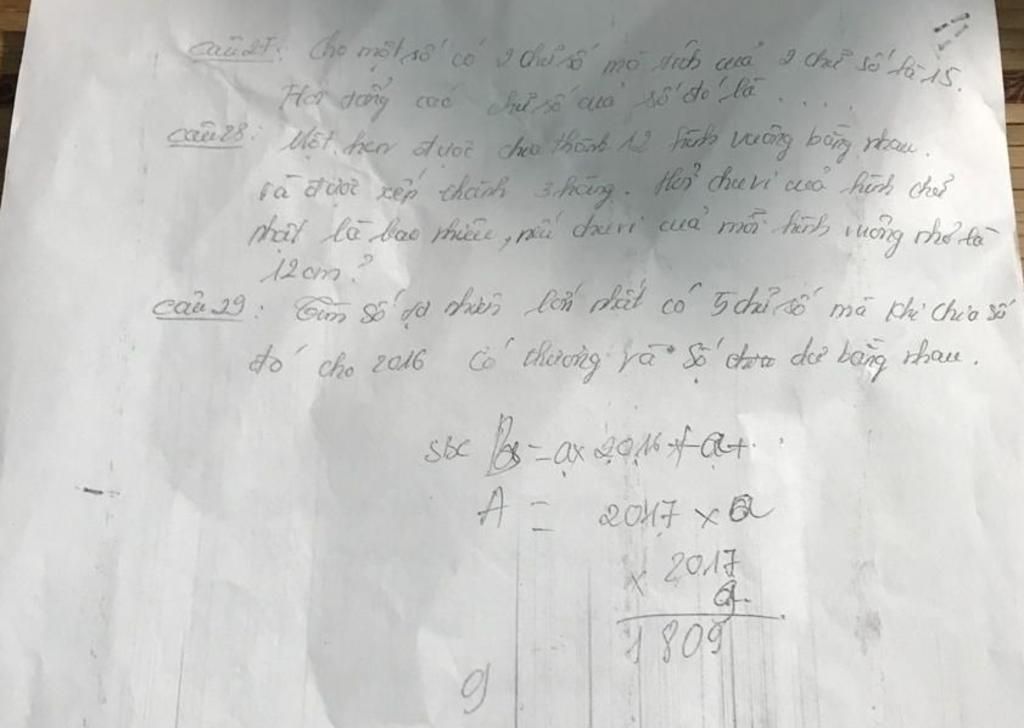 câu 27: Cho một số có 2 chữ số mà tích của 2 chữ số là 15.
Hỏi tổng các chữ số của số đó là ....
câu 28: Một hcn được chia thành 12 hình vuông bằng nhau.
và được xếp thành 3 hàng. Hỏi chu vi của hình chữ
nhật là bao nhiêu, nếu chu vi của mỗi hình vuông nhỏ là
12cm?
câu 29: Tìm số tự nhiên lớn nhất có 5 chữ số mà khi chia số
đó cho 2016 có thương và số dư bằng nhau.
SBC = a x 2016 + a
A = 2017 x a
x 2017
a
1809
9